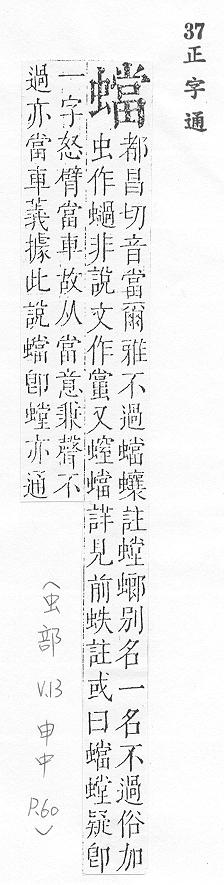 37正字通
蟷
都昌切音當爾雅不過蟷蠰註螳螂別名一名不過俗加
虫作非說文作又螲蟷詳見前蛈註或曰蟷螳疑卽
一字怒臂當車故从當意兼聲不
過亦當車義據此說蟷卽螳亦通
(虫部 V.13 申中 P.60)